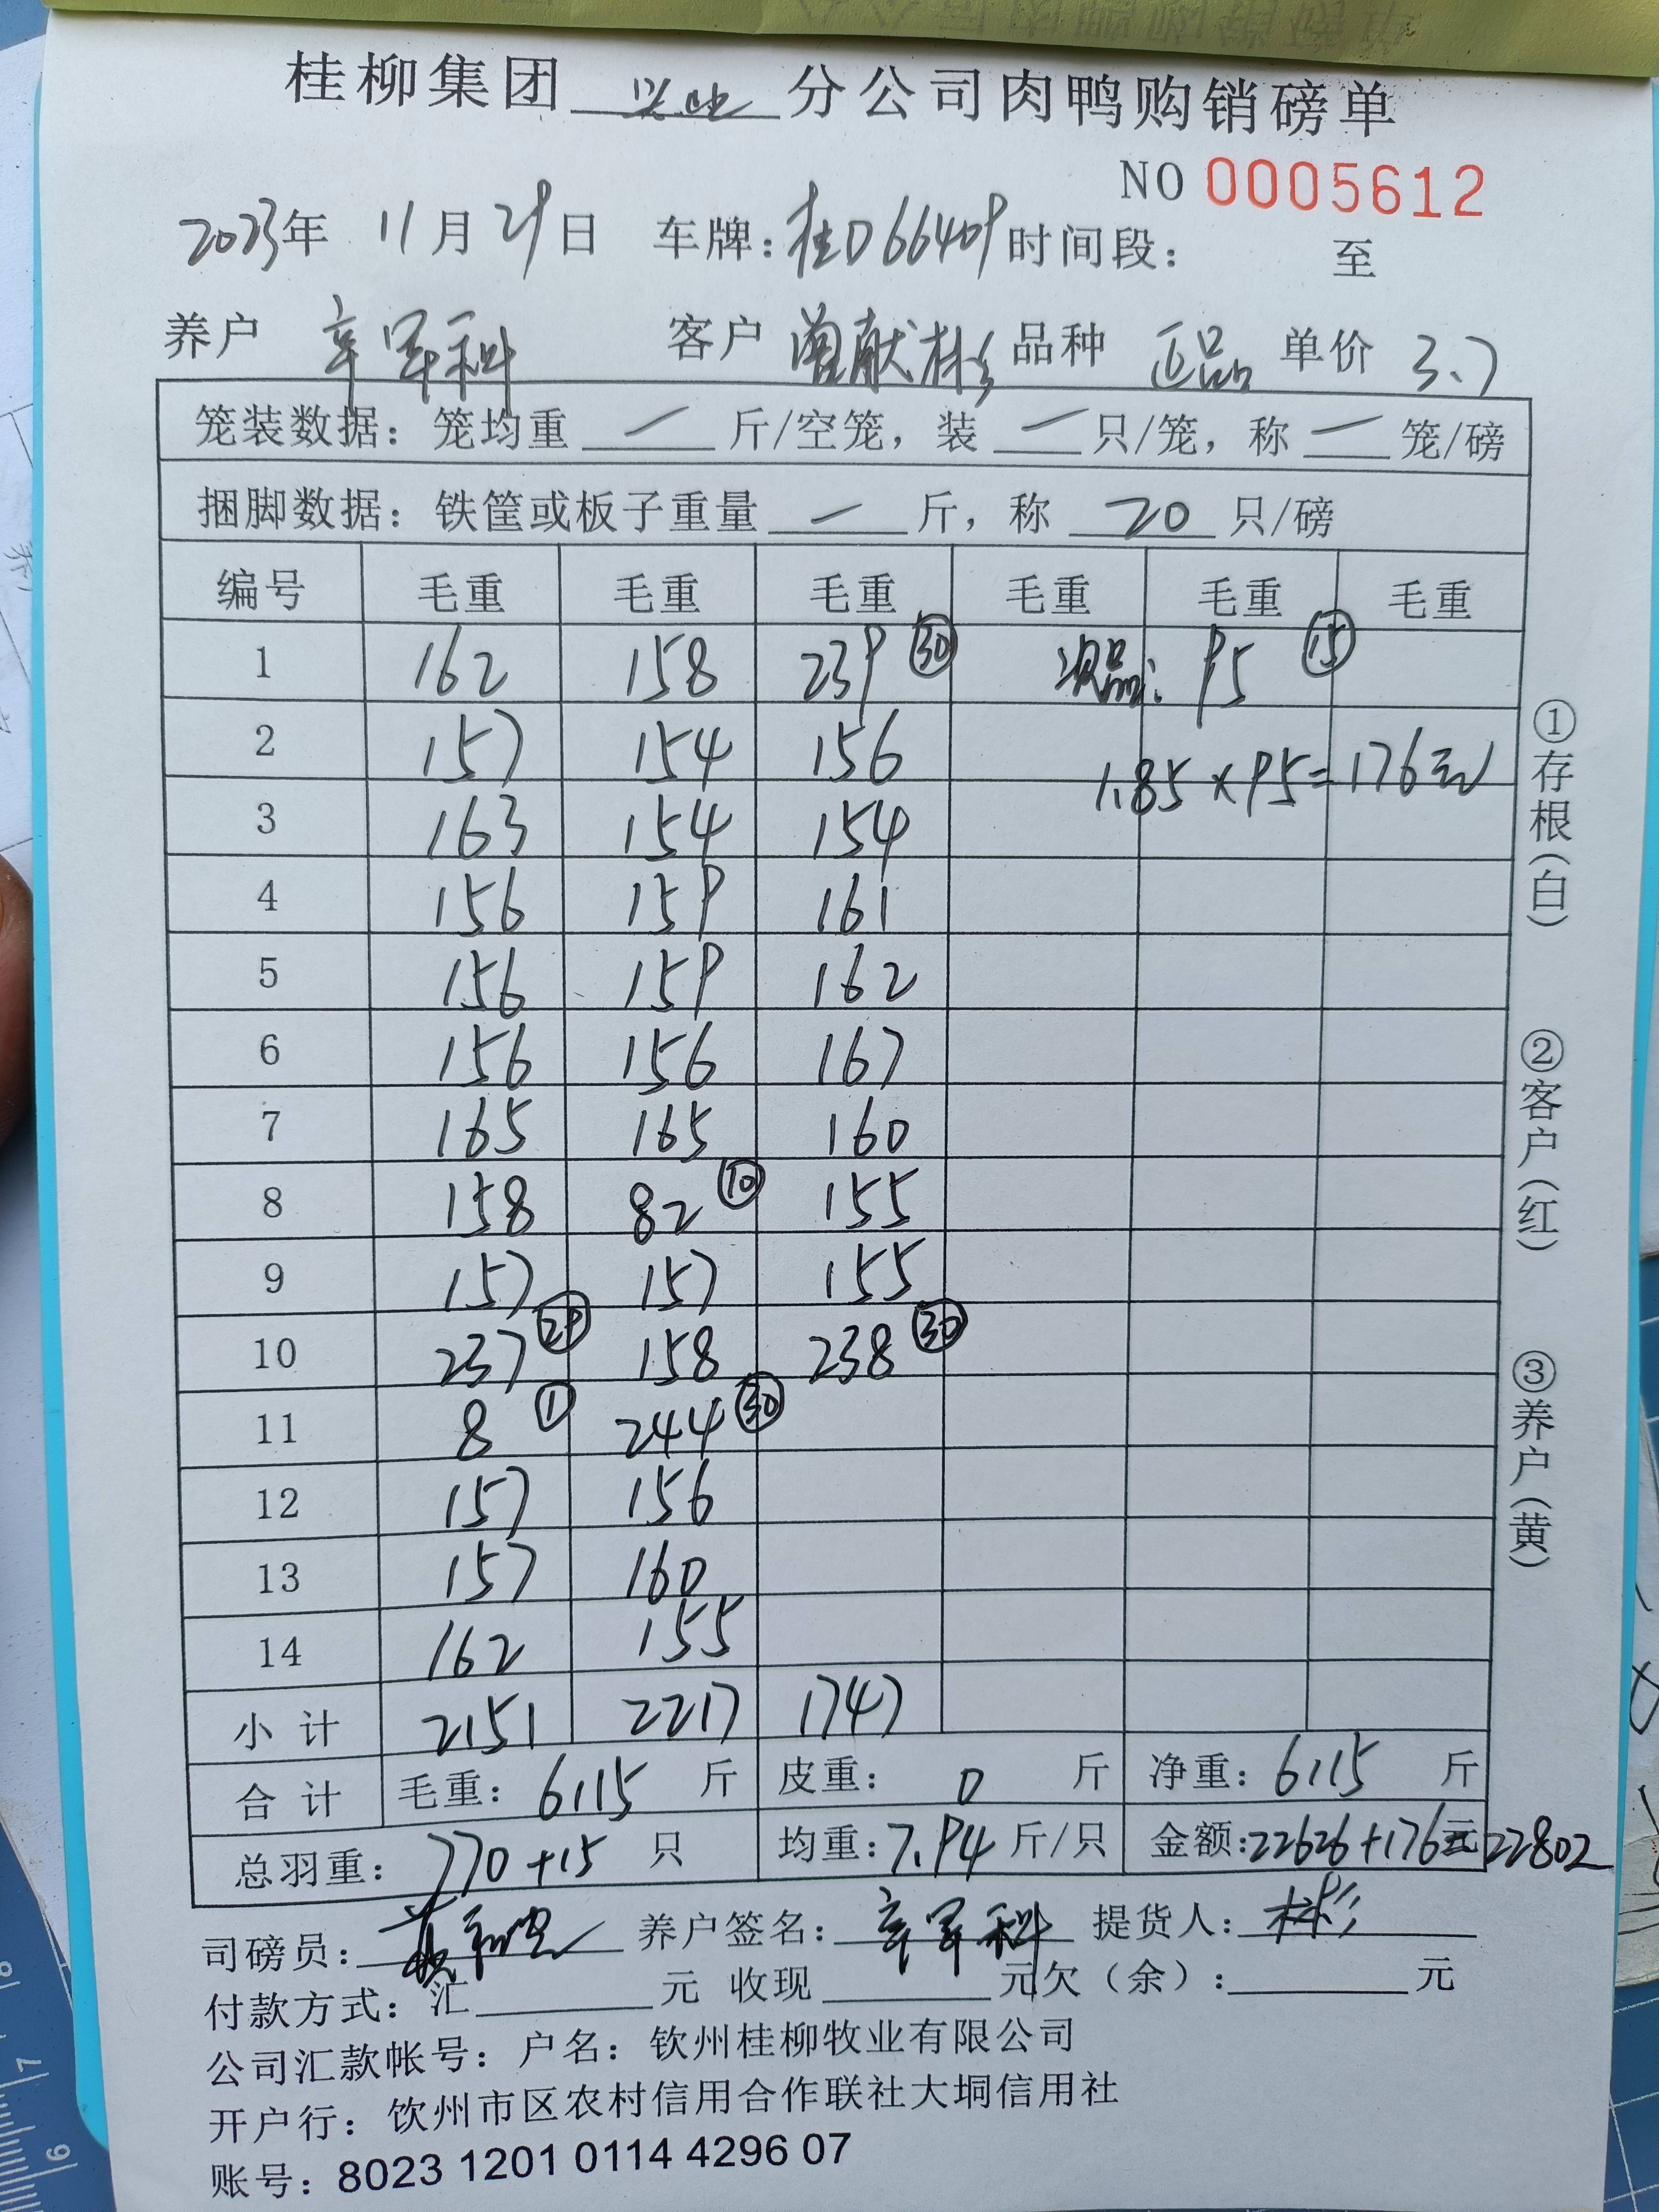 桂柳集团 兴业 分公司肉鸭购销磅单
NO 0005612
2023年 11月29日 车牌:桂D66409 时间段: 至
养户 辛军科 客户 曾献彬 品种 正品 单价 3.7
笼装数据:笼均重 一 斤/空笼,装 一 只/笼,称 一 笼/磅
捆脚数据:铁筐或板子重量 一 斤,称 20 只/磅
编号 毛重 毛重 毛重 毛重 毛重 毛重
1 162 158 239 ㉚ 次品: 95 ⑮
2 157 154 156 1.85×95=176元
3 163 154 154
4 156 159 161
5 156 159 162
6 156 156 167
7 165 165 160
8 158 82 ⑩ 155
9 157 157 155
10 237 ㉙ 158 238 ㉚
11 8 ① 244 ㉚
12 157 156
13 157 160
14 162 155
小计 2151 2217 1747
合计 毛重:6115 斤 皮重: 0 斤 净重:6115 斤
总羽重: 770+15 只 均重:7.94 斤/只 金额:22626+176元22802
司磅员: 养户签名:辛军科 提货人:彬
付款方式:汇 元 收现 元欠(余): 元
公司汇款帐号:户名:钦州桂柳牧业有限公司
开户行:钦州市区农村信用合作联社大垌信用社
账号:8023 1201 0114 4296 07
①存根(白)
②客户(红)
③养户(黄)